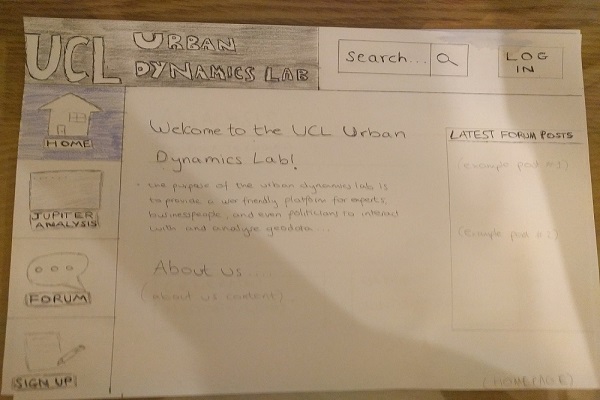 UCL URBAN
DYNAMICS LAB
Search...
LOG
IN
HOME
JUPITER
ANALYSIS
FORUM
SIGN UP
Welcome to the UCL Urban
Dynamics Lab!
the purpose of the urban dynamics lab is
to provide a user friendly platform for experts,
businesspeople, and even politicians to interact
with and analyse geodata...
About us
(about us content)
LATEST FORUM POSTS
(example post #1)
(example post #2)
(HOMEPAGE)